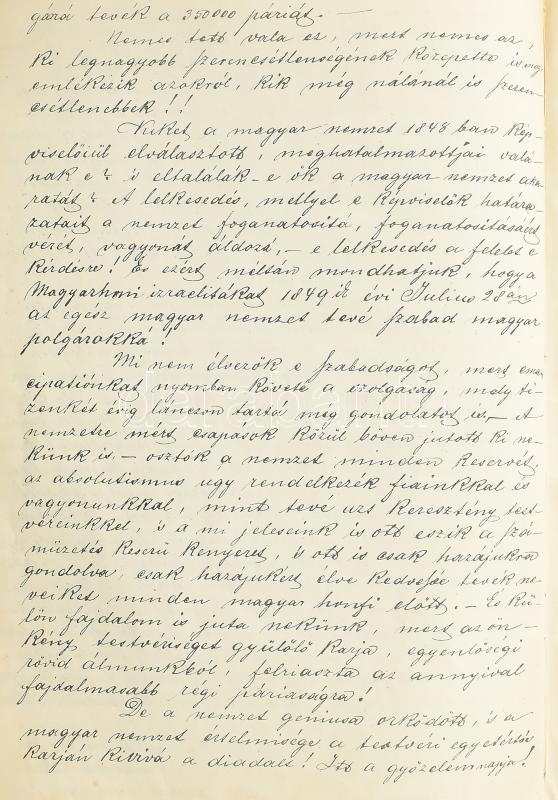 gárá tevék a 350000 páriát. —
Nemes tett vala ez, mert nemes az,
ki legnagyobb szerencsétlenségének közepette is meg
emlékezik azokról, kik még nálánál is szeren
csétlenebbek!!
Kiket a magyar nemzet 1848 ban kép-
viselőiül elválasztott, meghatalmazottjai valá-
nak e? 's eltalálák-e ők a magyar nemzet aka-
ratát? A lelkesedés, mellyel e képviselők határo-
zatait a nemzet foganatosítá, foganatosításáért
vérét, vagyonát áldozá, — e lelkesedés a felelet e
kérdésre! És ezért méltán mondhatjuk, hogy a
Magyarhoni izraelitákat 1849 ik évi Julius 28 án
az egész magyar nemzet tevé szabad magyar
polgárokká!
Mi nem élvezők e szabadságot, mert eman
cipatiónkat nyomban követé a szolgaság, mely ti-
zenkét évig lánczon tartá még gondolatot is, — A
nemzetre mért csapások közül bőven jutott ki ne-
künk is, — osztók a nemzet minden keservét,
az absolutismus ugy rendelkezék fiainkkal és
vagyonunkkal, mint tevé azt keresztény test-
véreinkkel, 's a mi jeleseink is ott eszik a szá-
müzetés keserü kenyerét, 's ott is csak hazájukra
gondolva, csak hazájukért élve kedvessé tevék ne-
veiket minden magyar honfi előtt. — És kü-
lön fajdalom is juta nekünk, mert az ön-
kény testvériséget gyülölő karja, egyenlőségi
rövid álmunkból, felriaszta az annyival
fajdalmasabb régi páriaságra!
De a nemzet geniusa őrködött, 's a
magyar nemzet értelmisége a testvéri egyetértés
karján kivívá a diadalt! Itt a győzelem napja!